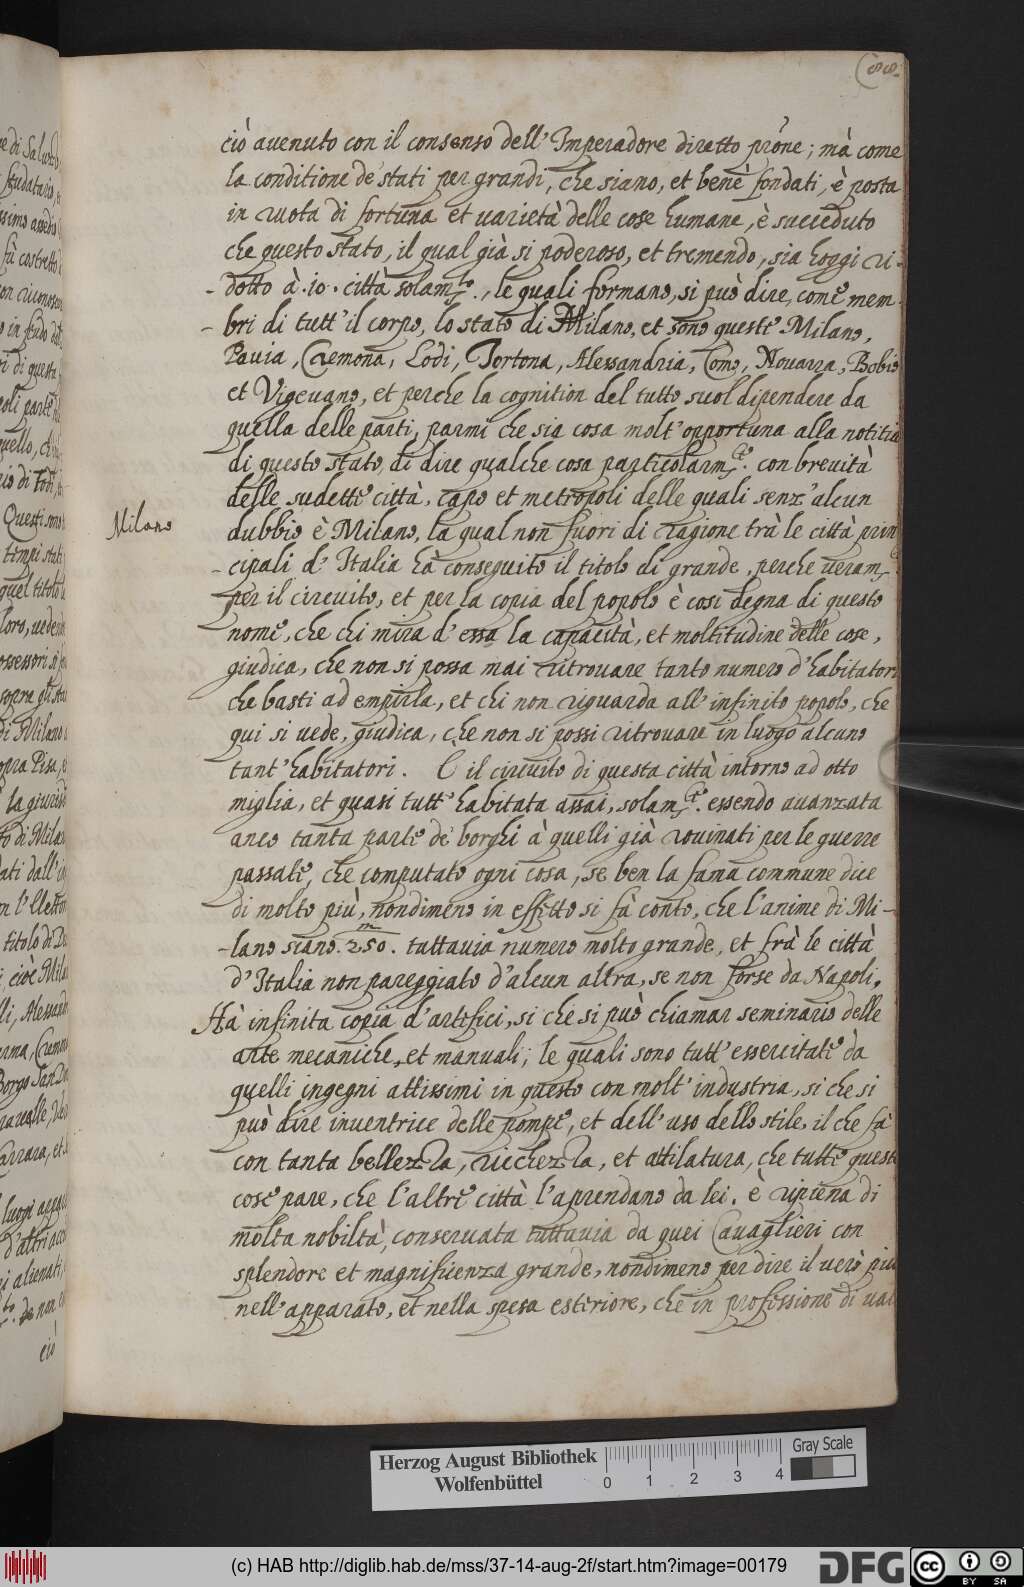 88.
ciò auenuto con il consenso dell' Imperadore diretto prõne; mà come
la conditione de stati per grandi, che siano, et benè fondati, è posta
in ruota di fortuna et uarietà delle cose humane, è succeduto
che questo stato, il qual già si poderoso, et tremendo, sia hoggi ri-
-dotto à .10. città solam.te, le quali formano, si può dire, come mem-
-bri di tutt' il corpo, lo stato di Milano, et sono queste Milano,
Pauia, Cremona, Lodi, Tortona, Alessandria, Como, Nouarra, Bobio
et Vigeuano, et perche la cognition del tutto suol dipendere da
quella delle parti, parmi che sia cosa molt' opportuna alla notitia
di questo stato, di dire qualche cosa particolarm.te con breuità
delle sudette città, capo et metropoli delle quali senz' alcun
Milano
dubbio è Milano, la qual non fuori di ragione trà le città prin
-cipali d' Italia hà conseguito il titolo di grande, perche ueram.te
per il circuito, et per la copia del popolo è così degna di questo
nome, che chi mira d' essa la capacità, et moltitudine delle cose,
giudica, che non si possa mai ritrouare tanto numero d' habitatori
che basti ad empirla, et chi non riguarda all' infinito popolo, che
qui si uede, giudica, che non si possi ritrouare in luogo alcuno
tant' habitatori. È il circuito di questa città intorno ad otto
miglia, et quasi tutt' habitata assai, solam.te essendo auanzata
anco tanta parte de borghi à quelli già rouinati per le guerre
passate, che computato ogni cosa, se ben la fama commune dice
di molto più, nondimeno in effetto si fà conto, che l'anime di Mi-
-lano siano .250.m tuttauia numero molto grande, et frà le città
d' Italia non pareggiato d' alcun altra, se non forse da Napoli.
Hà infinita copia d' artefici, si che si può chiamar seminario delle
arte mecaniche, et manuali, le quali sono tutt' essercitate da
quelli ingegni attissimi in questo con molt' industria, si che si
può dire inuentrice delle pompe, et dell' uso dello stile, il che fà
con tanta bellezza, ricchezza, et attilatura, che tutte queste
cose pare, che l'altre città l'aprendano da lei. è ripiena di
molta nobiltà, conseruata tuttauia da quei Cauaglieri con
splendore et magnificenza grande, nondimeno per dire il uero più
nell' apparato, et nella spesa esteriore, che in professione di ual
Herzog August Bibliothek
Wolfenbüttel
0 1 2 3 4
Gray Scale
(c) HAB http://diglib.hab.de/mss/37-14-aug-2f/start.htm?image=00179
DFG
cc BY SA